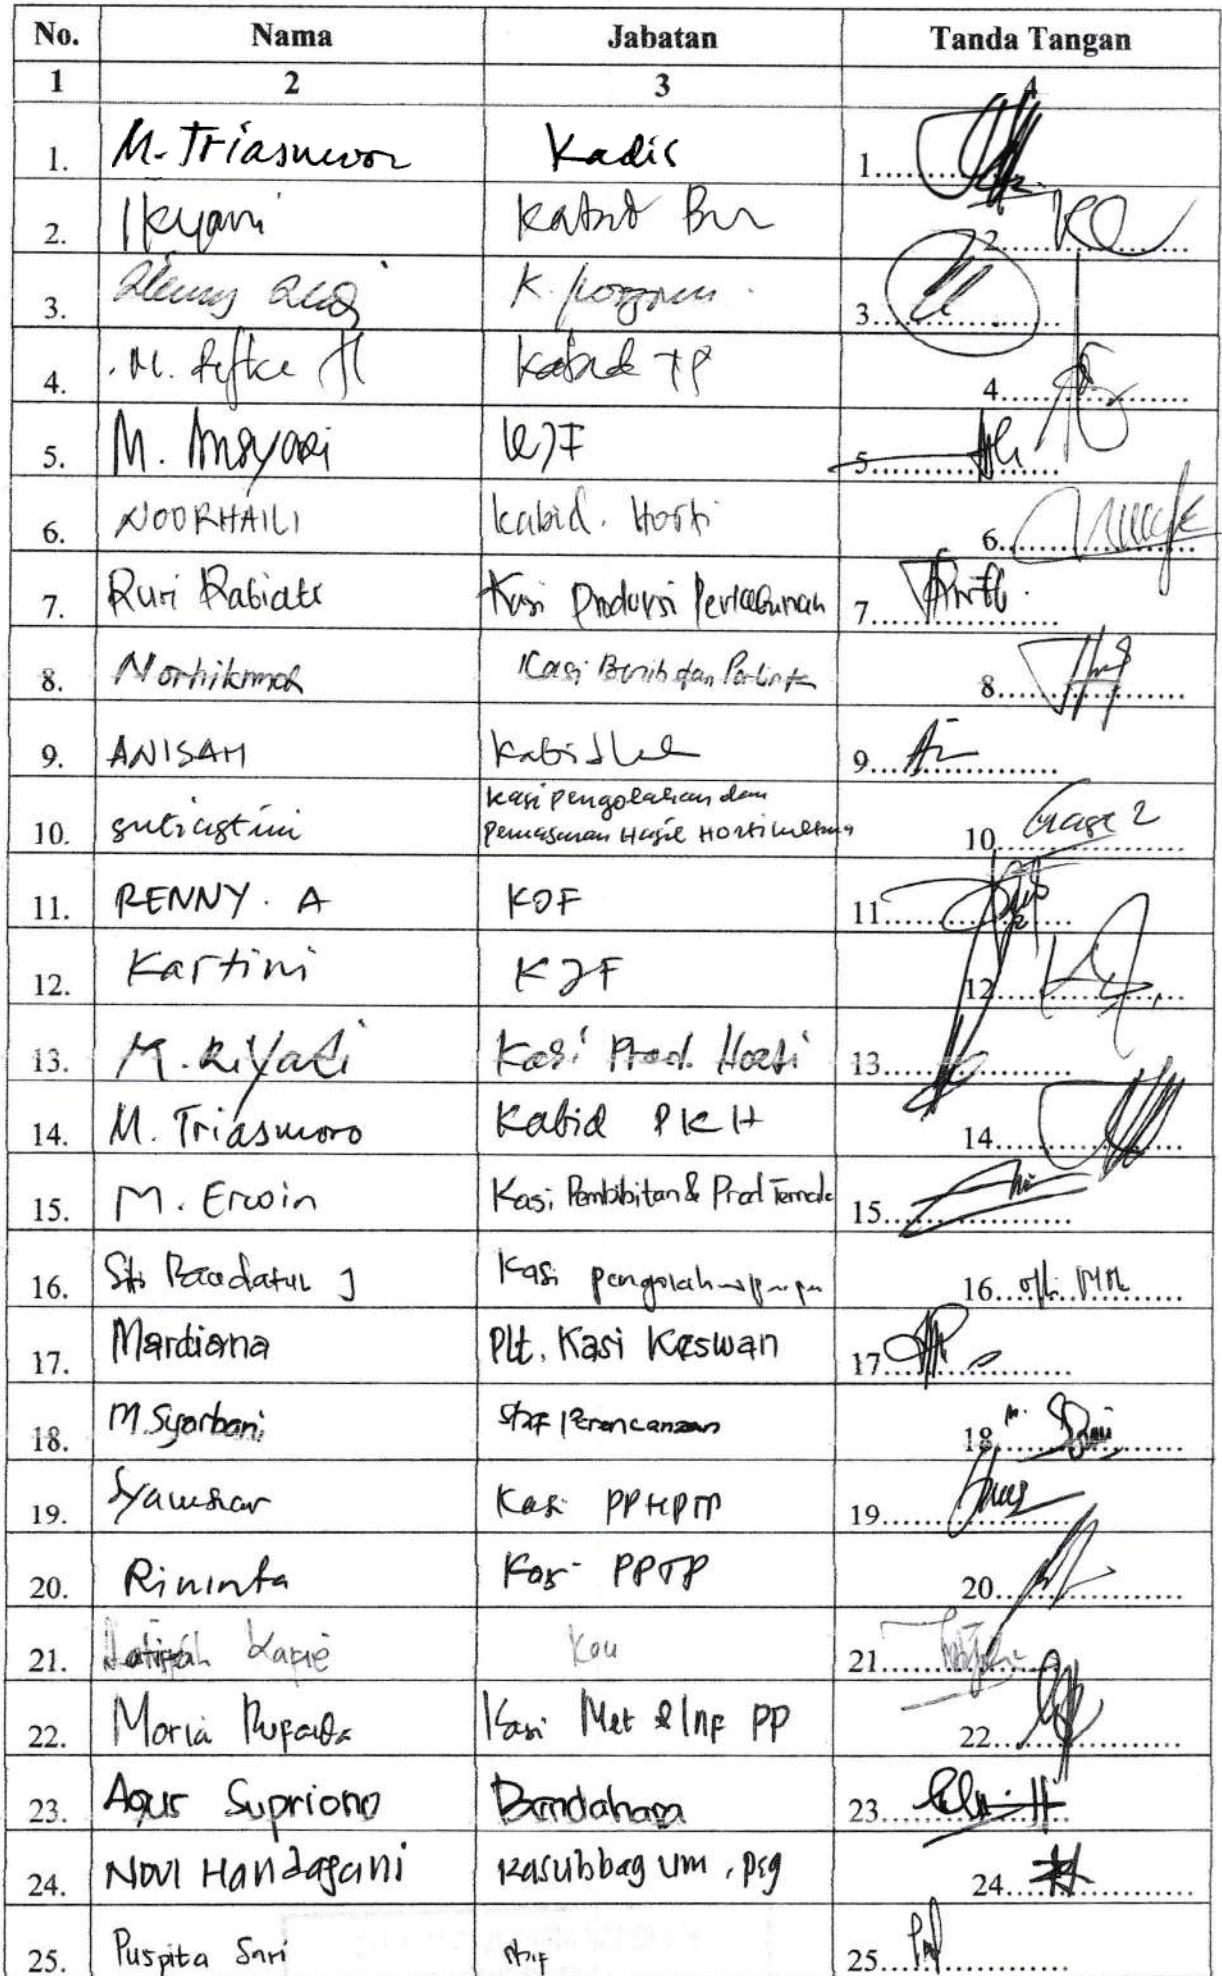 No. Nama Jabatan Tanda Tangan
1 2 3 4
1. M. Triasmoro Kadis 1
2. Ikyani Kabid Bun 2
3. K. 3
4. M. Kabid TP 4
5. M. Ansyari KJF 5
6. NOORHAILI Kabid. Horti 6
7. Ruri Rabiati Kasi Produksi Perkebunan 7
8. Norhikmah Kasi Benih dan Perlinta 8
9. ANISAH Kabid 9
10. Kasi pengolahan dan
pemasaran Hasil Hortikultura 10
11. RENNY. A KJF 11
12. Kartini KJF 12
13. M. Riyadi Kasi Prod. Horti 13
14. M. Triasmoro Kabid PKH 14
15. M. Erwin Kasi Pembibitan & Prod Ternak 15
16. Siti Raudatul J Kasi 16
17. Mardiana Plt. Kasi Keswan 17
18. M. Syarbani Staf Perencanaan 18
19. Syamsiar Kasi PPHPTP 19
20. Rininta Kasi PPTP 20
21. 21
22. Maria Kasi Met & Inf PP 22
23. Agus Supriono Bendahara 23
24. Novi Handayani Kasubbag Um, peg 24
25. Puspita Sari Staf 25